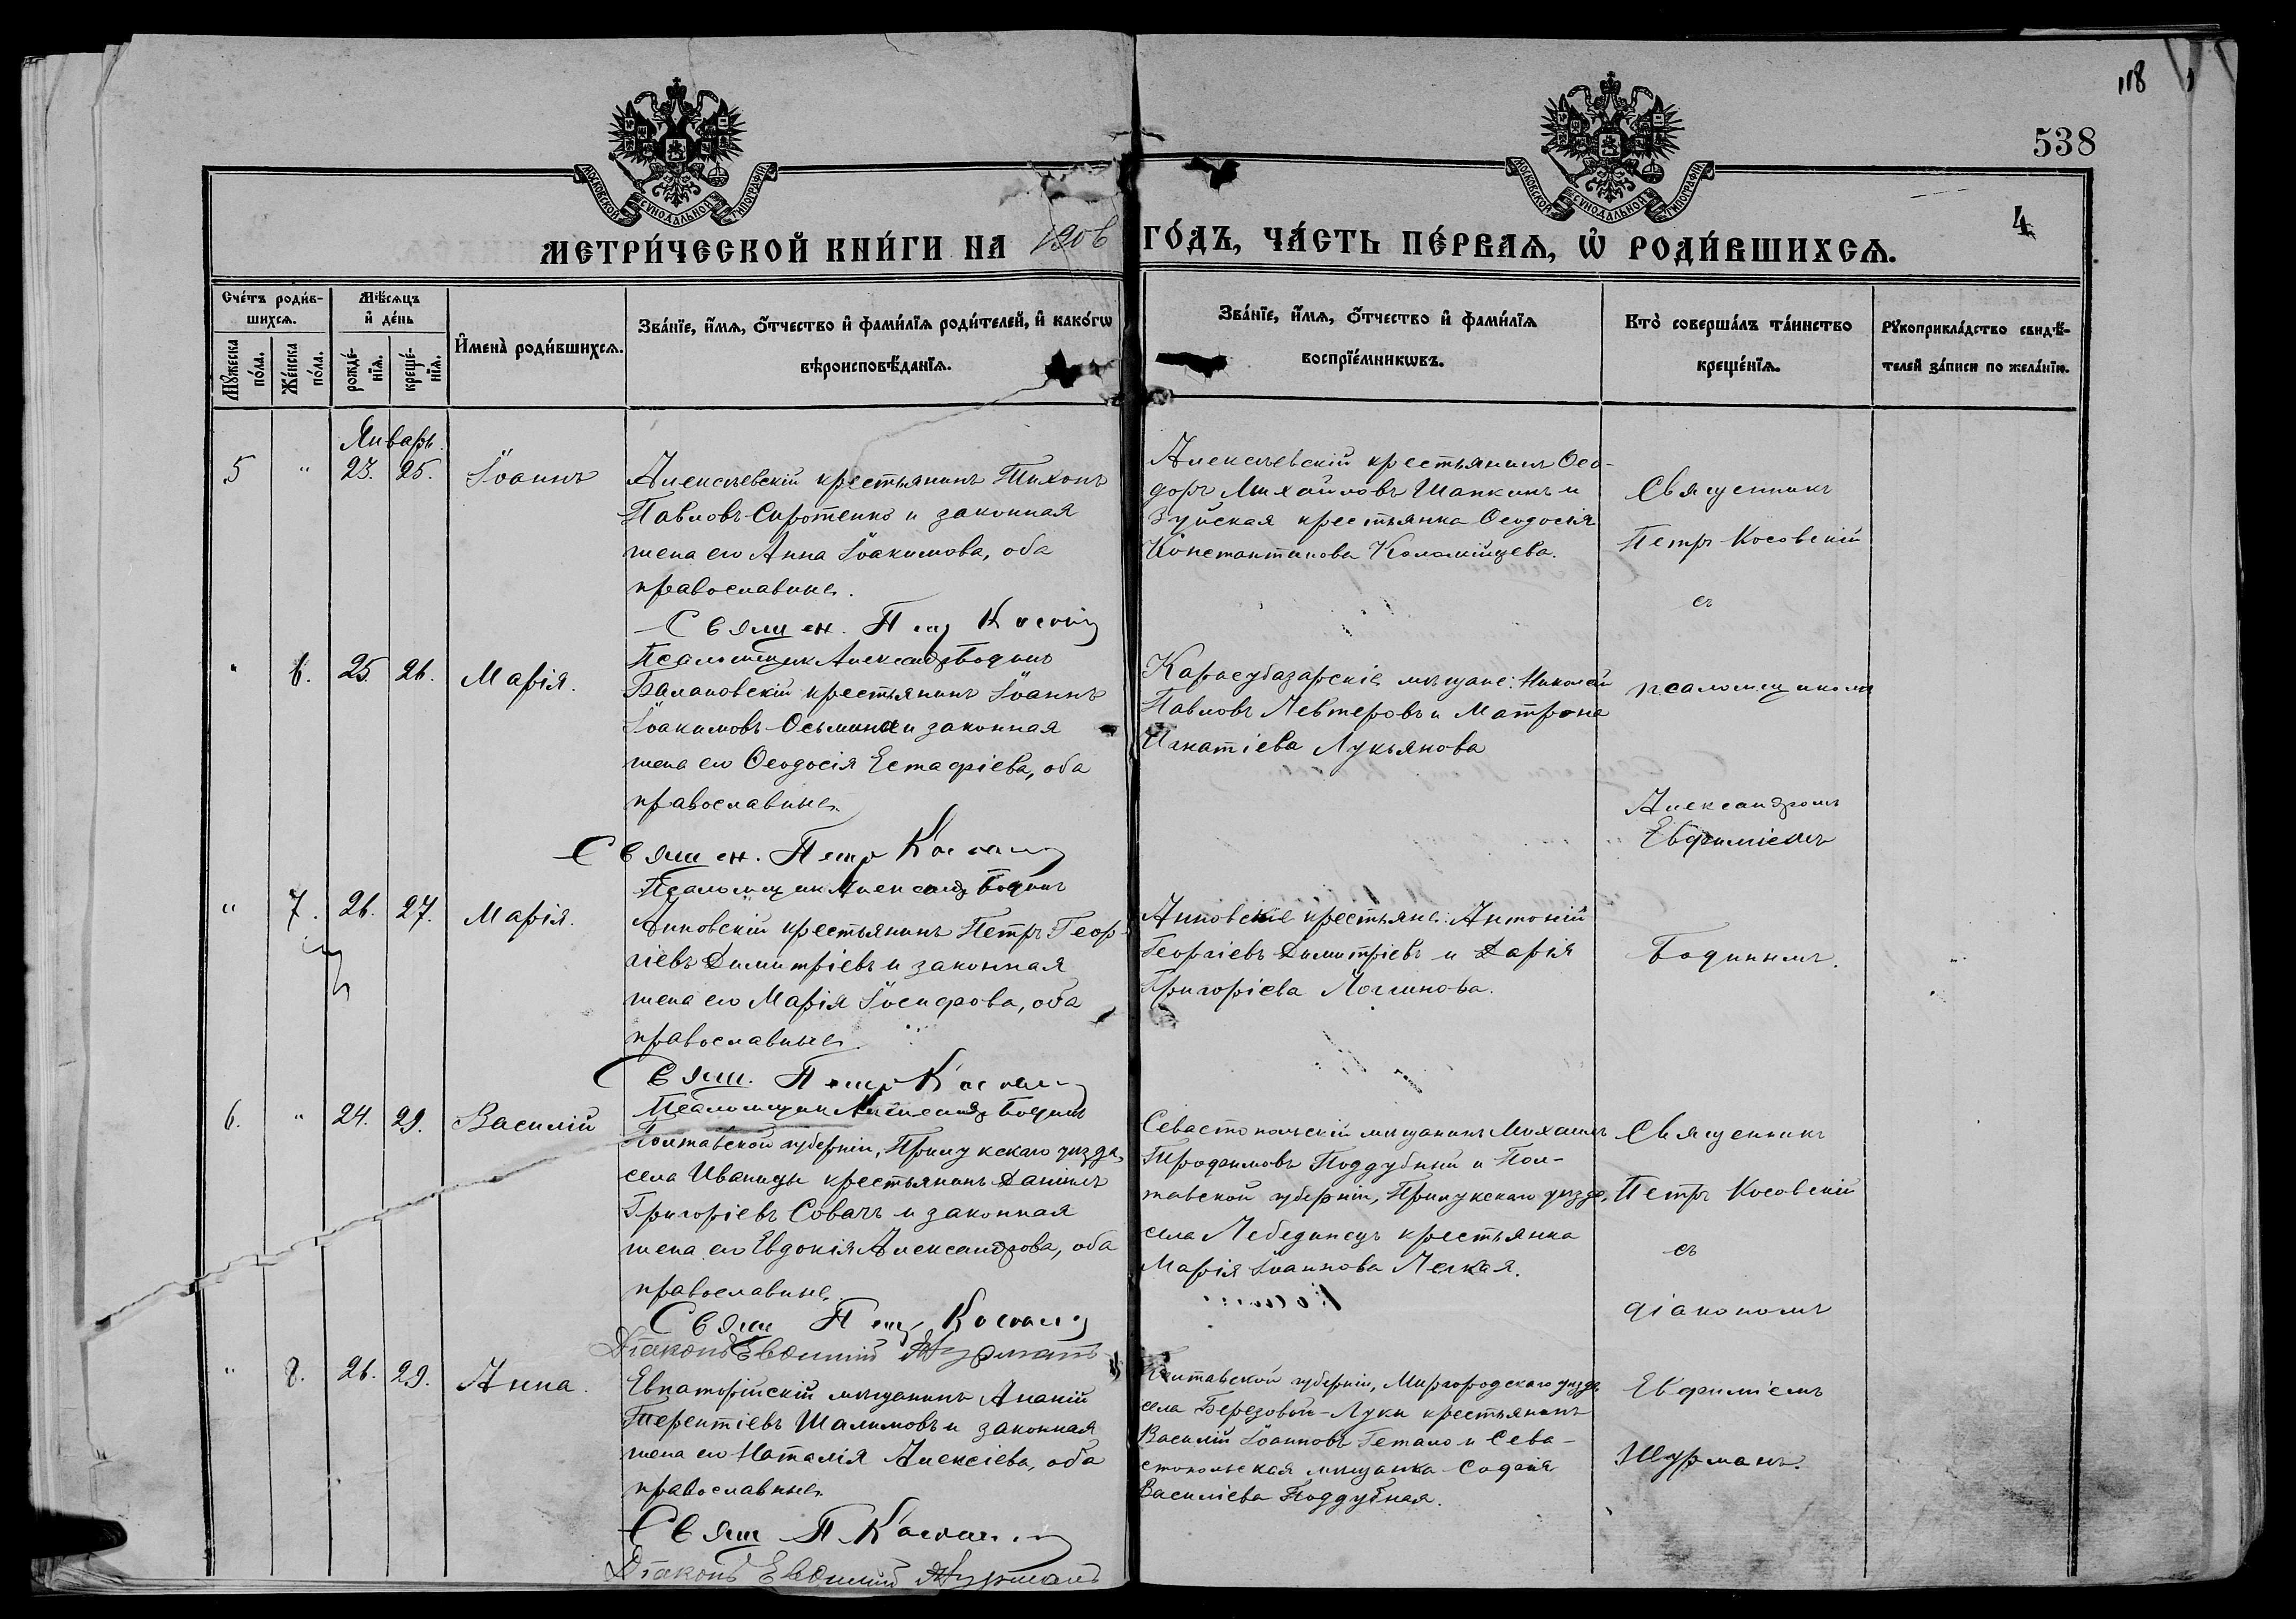 118
538
МОСКОВСКОЙ СУНОДАЛЬНОЙ ТИПОГРАФІИ
МОСКОВСКОЙ СУНОДАЛЬНОЙ ТИПОГРАФІИ
4
МЕТРИ́ЧЕСКОЙ КНИ́ГИ НА 1906 ГО́ДЪ, ЧА́СТЬ ПЕ́РВАѦ, Ѡ҆ РОДИ́ВШИХСѦ.
Сче́тъ роди́в-
шихсѧ.
Мꙋ́жеска по́ла.
Же́нска по́ла.
Мѣ́сѧцъ
и҆ де́нь
рожде́-
нїѧ.
креще́-
нїѧ.
И҆мена̀ роди́вшихсѧ.
Зва́нїе, и҆́мѧ, ѻ҆́тчество и҆ фами́лїѧ роди́телей, и҆ како́гѡ
вѣроисповѣ́данїѧ.
Зва́нїе, и҆́мѧ, ѻ҆́тчество и҆ фами́лїѧ
воспрїе́мникѡвъ.
Кто̀ соверша́лъ та́инство
креще́нїѧ.
Рꙋкоприкла́дство свидѣ́-
телей за́писи по жела́нїю.
Январь.
5 " 23. 25. Іоаннъ
Алексѣевскій крестьянинъ Тихонъ
Павловъ Сиротенко и законная
жена его Анна Іоакимова, оба
православные.
Священ. Петр Косовскій
Псаломщик Александр Бодинъ
Алексѣевскій крестьянинъ Ѳео-
доръ Михайловъ Шапкинъ и
Зуйская крестьянка Ѳеодосія
Константинова Коломійцева.
Священникъ
Петръ Косовскій
съ
" 6. 25. 26. Марія.
Балановскій крестьянинъ Іоаннъ
Іоакимовъ Осьмина и законная
жена его Ѳеодосія Естафіева, оба
православные.
Священ. Петр Косовскій
Псаломщик Александр Бодинъ
Карасубазарскіе мѣщане: Николай
Павловъ Левтеровъ и Матрона
Игнатіева Лукьянова
псаломщикомъ
Александромъ
Евфиміемъ
" 7. 26. 27. Марія.
Анновскій крестьянинъ Петръ Геор-
гіевъ Димитріевъ и законная
жена его Марія Іосифова, оба
православные.
Свящ. Петр Косовскій
Псаломщик Александр Бодинъ
Анновскіе крестьяне: Антоній
Георгіевъ Димитріевъ и Дарія
Григоріева Логинова.
Бодинымъ.
6. " 24. 29. Василій
Полтавской губерніи, Прилукскаго уѣзда,
села Иваницы крестьянинъ Даніилъ
Григоріевъ Совачъ и законная
жена его Евдокія Александрова, оба
православные.
Свящ Петр Косовскій
Діаконъ Евѳимій Шурманъ
Севастопольскій мѣщанинъ Михаилъ
Трофимовъ Поддубный и Пол-
тавской губерніи, Прилукскаго уѣзда,
села Лебединецъ крестьянка
Марія Іоаннова Легкая.
Священникъ
Петръ Косовскій
съ
діакономъ
" 8. 26. 29. Анна.
Евпаторійскій мѣщанинъ Ананій
Терентіевъ Шалимовъ и законная
жена его Наталія Алексіева, оба
православные.
Свящ П. Косовскій
Діаконъ Евѳимій Шурманъ
Полтавской губерніи, Миргородскаго уѣзда,
села Березовой-Луки крестьянинъ
Василій Іоанновъ Гетало и Сева-
стопольская мѣщанка Софія
Василіева Поддубная.
Евфиміемъ
Шурманъ.